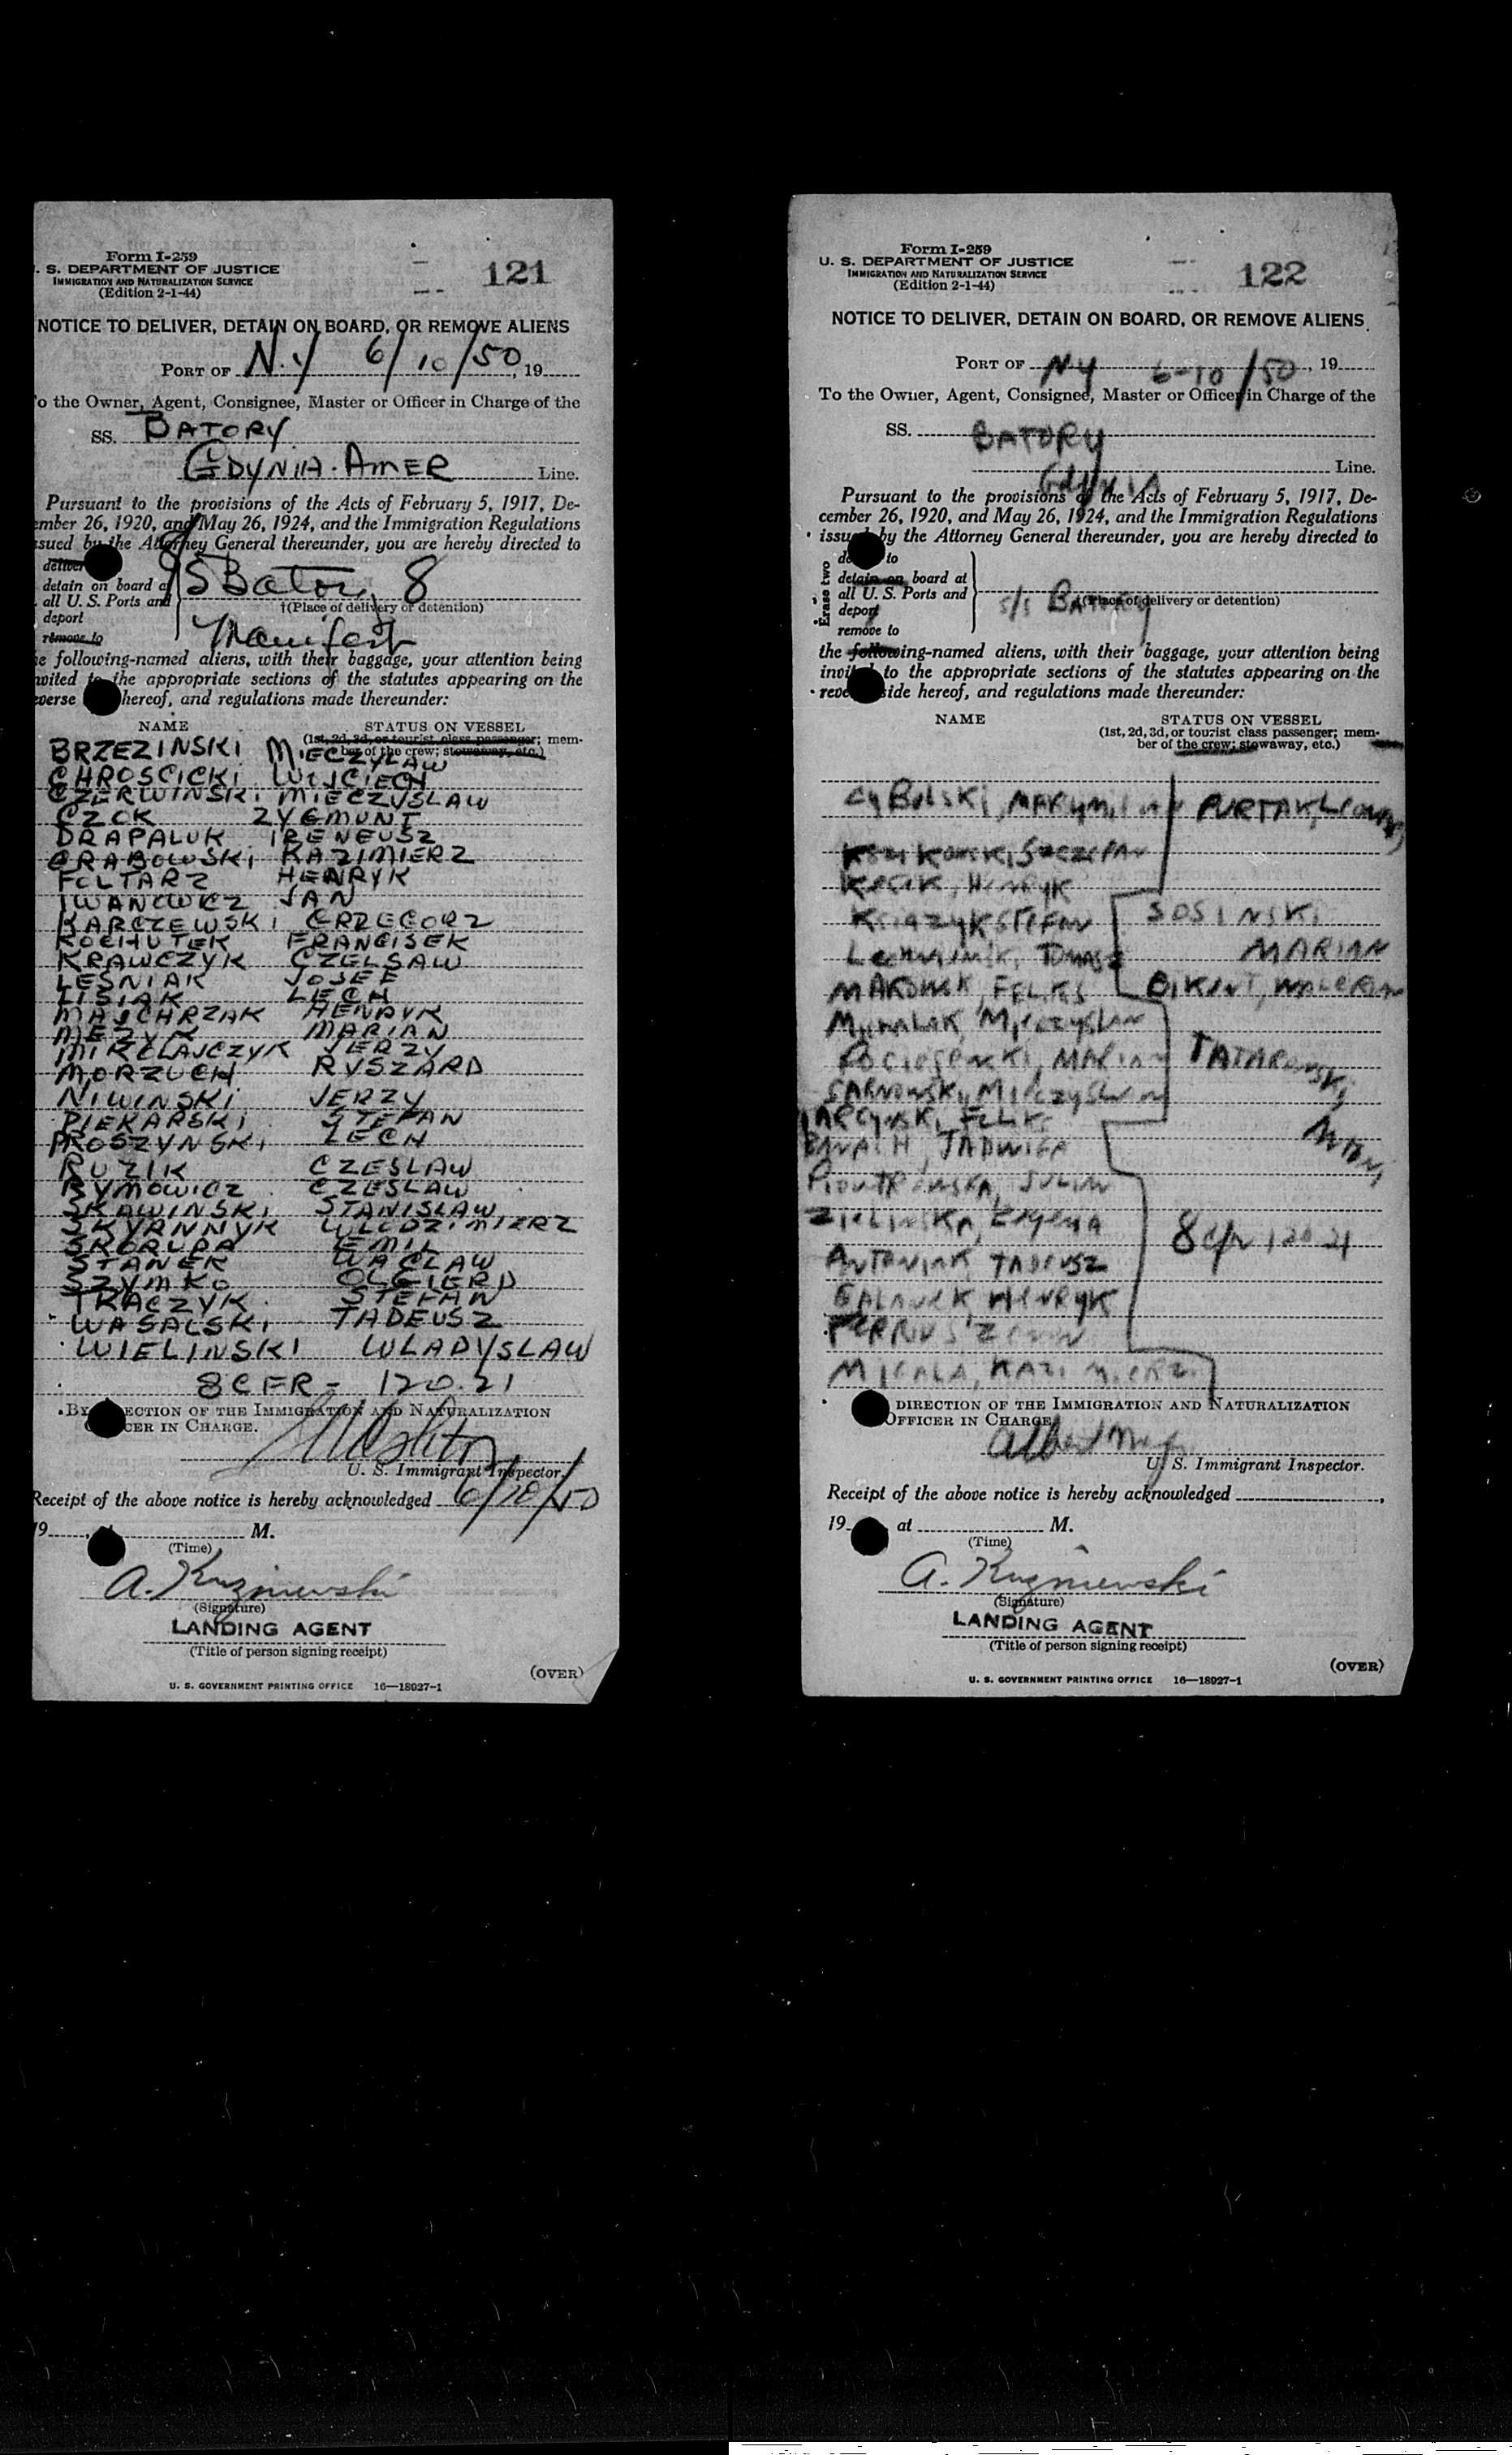 Form I-259
. S. DEPARTMENT OF JUSTICE
IMMIGRATION AND NATURALIZATION SERVICE
(Edition 2-1-44)
121
NOTICE TO DELIVER, DETAIN ON BOARD, OR REMOVE ALIENS
PORT OF N.Y 6/10/50, 19
o the Owner, Agent, Consignee, Master or Officer in Charge of the
SS. BATORY
GDYNIA-AMER Line.
Pursuant to the provisions of the Acts of February 5, 1917, De-
ember 26, 1920, and May 26, 1924, and the Immigration Regulations
ssued by the Attorney General thereunder, you are hereby directed to
deliver
detain on board at
all U. S. Ports and
deport
remove to
SBatory 8
†(Place of delivery or detention)
Manifest
e following-named aliens, with their baggage, your attention being
nvited to the appropriate sections of the statutes appearing on the
verse hereof, and regulations made thereunder:
NAME STATUS ON VESSEL
(1st, 2d, 3d, or tourist class passenger; mem-
ber of the crew; stowaway, etc.)
BRZEZINSKI MIECZYLAW
CHROSCICKI WOJCIECH
CZERWINSKI MIECZYSLAW
CZOK ZYGMUNT
DRAPALUK IRENEUSZ
GRABOWSKI KAZIMIERZ
FOLTARZ HENRYK
IWANOWICZ JAN
KARCZEWSKI GRZEGORZ
KOCHUTEK FRANCISEK
KRAWCZYK CZELSAW
LESNIAK JOSEF
LISIAK LECH
MAJCHRZAK HENRYK
MEZYK MARIAN
MIKOLAJCZYK JERZY
MORZUCH RYSZARD
NIWINSKI JERZY
PIEKARSKI STEFAN
PROSZYNSKI LECH
RUZIK CZESLAW
RYMOWICZ CZESLAW
SKAWINSKI STANISLAW
SKYRNNYK WLODZIMIERZ
SKORUPA EMIL
STANEK WACLAW
SZYMKO OLGIERD
TKACZYK STEFAN
WASALSKI TADEUSZ
WIELINSKI WLADYSLAW
8CFR- 120.21
BY ECTION OF THE IMMIGRATION AND NATURALIZATION
CER IN CHARGE.
U. S. Immigrant Inspector.
Receipt of the above notice is hereby acknowledged 6/10/50
19 M.
(Time)
A. Kuzniewski
(Signature)
LANDING AGENT
(Title of person signing receipt)
(OVER)
U. S. GOVERNMENT PRINTING OFFICE 16—18927-1
Form I-259
U. S. DEPARTMENT OF JUSTICE
IMMIGRATION AND NATURALIZATION SERVICE
(Edition 2-1-44)
122
NOTICE TO DELIVER, DETAIN ON BOARD, OR REMOVE ALIENS
PORT OF NY 6-10/50, 19
To the Owner, Agent, Consignee, Master or Officer in Charge of the
SS. BATORY
Gdynia Line.
Pursuant to the provisions of the Acts of February 5, 1917, De-
cember 26, 1920, and May 26, 1924, and the Immigration Regulations
issued by the Attorney General thereunder, you are hereby directed to
Erase two
to
detain on board at
all U. S. Ports and
deport
remove to
s/s BATORY
†(Place of delivery or detention)
the following-named aliens, with their baggage, your attention being
invited to the appropriate sections of the statutes appearing on the
reve side hereof, and regulations made thereunder:
NAME STATUS ON VESSEL
(1st, 2d, 3d, or tourist class passenger; mem-
ber of the crew; stowaway, etc.)
CYBULSKI, PURTAK,
SZCZEPAN
HENRYK
KSIAZYK STEFAN SOSINSKI
MARIAN
MAKOWSK, FELIKS
MICHALAK, MIECZYSLAW
MARIAN
SARNOWSKI, MIECZYSLAW
BANACH, JADWIGA
ZIELINSKA, EUGENIA
8 CFR 120.21
ANTONIAK TADEUSZ
GALANEK HENRYK
MIGALA, KAZIMIERZ
DIRECTION OF THE IMMIGRATION AND NATURALIZATION
OFFICER IN CHARGE.
Albert
U. S. Immigrant Inspector.
Receipt of the above notice is hereby acknowledged ,
19 at M.
(Time)
A. Kuzniewski
(Signature)
LANDING AGENT
(Title of person signing receipt)
(OVER)
U. S. GOVERNMENT PRINTING OFFICE 16—18927-1